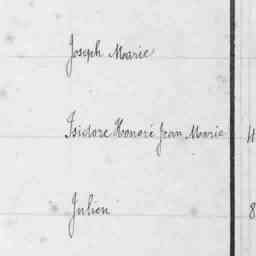 Joseph Marie
Isidore Honoré Jean Marie 4
Julien 8